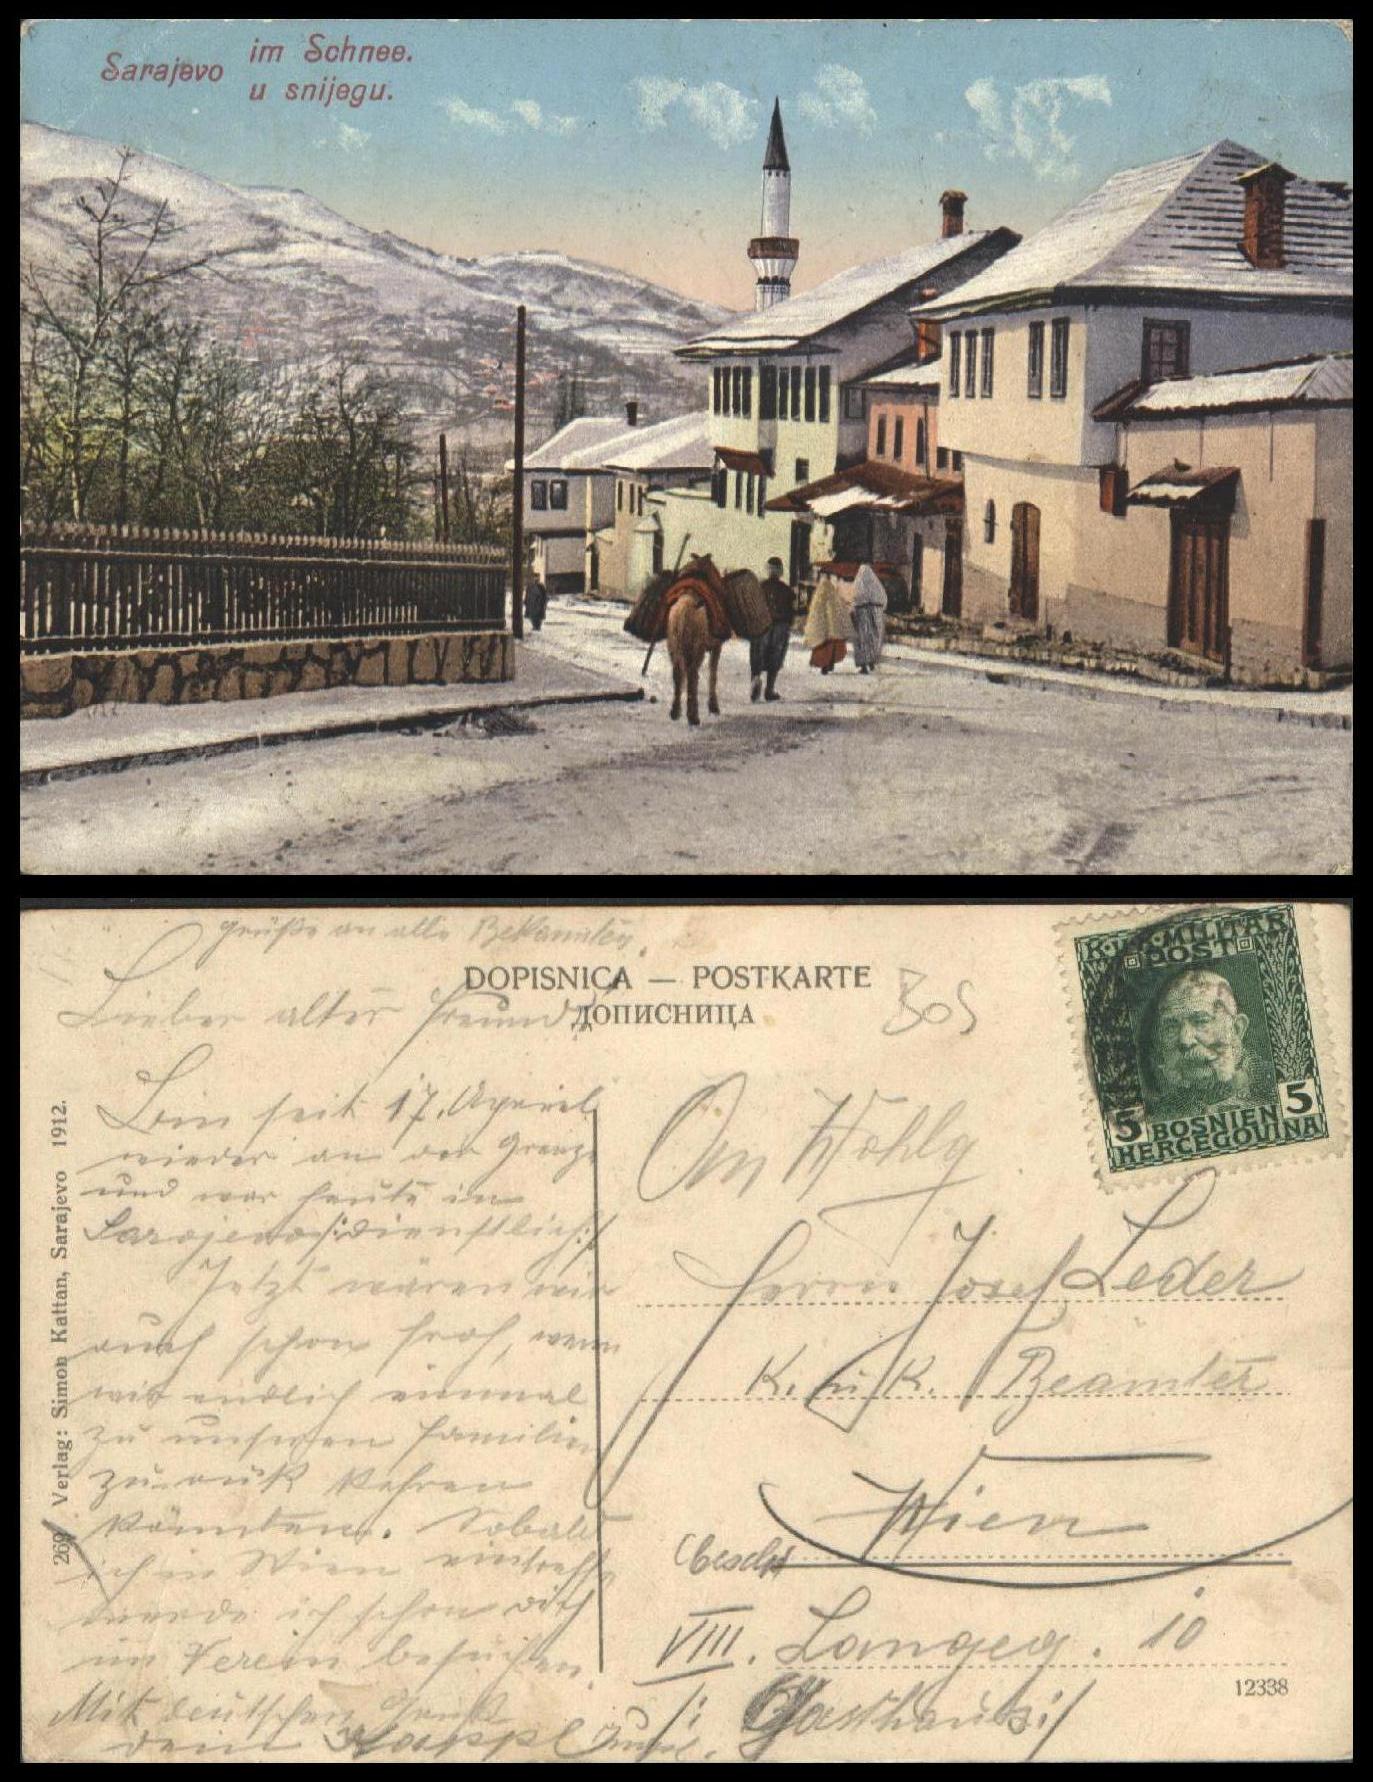 Sarajevo im Schnee.
u snijegu.
Grüße an alle Bekannten.
DOPISNICA — POSTKARTE
ДОПИСНИЦА
Bos
Lieber alter Freund!
Bin seit 17. April
wieder an der Grenze
und war heute in
Sarajevo /:dienstlich:/
Jetzt wären wir
auch schon froh, wenn
wir endlich einmal
zu unseren Familien
zurück kehren
könnten. Sobald
ich in Wien eintreffe
werde ich schon dich
im Verein besuchen.
Mit deutschen Gruß
dein
269 Verlag: Simon Kattan, Sarajevo 1912.
K.u.K. MILITÄR
POST
5 BOSNIEN 5
HERCEGOVINA
An Wohlg
Herrn Josef Leder
K. u. K. Beamter
Wien
VIII. Langeg. 10
/: Gasthaus :/
12338